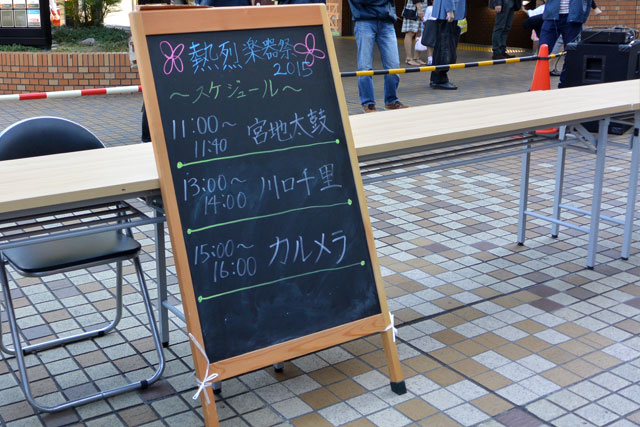 熱烈楽器祭
2015
～スケジュール～
11:00～
11:40
宮地太鼓
13:00～
14:00
川口千里
15:00～
16:00
カルメラ